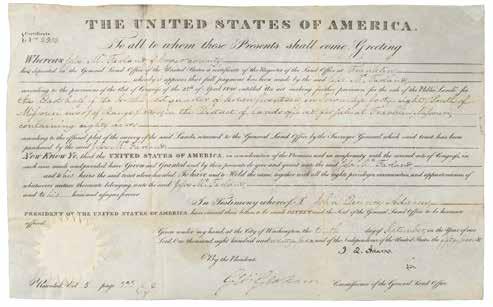 Certificate
THE UNITED STATES OF AMERICA.
To all to whom these Presents shall come, Greeting
Whereas John McFarland of Cooper County
has deposited in the General Land Office of the United States a Certificate of the Register of the Land Office at Franklin
whereby it appears that full payment has been made by the said John McFarland
according to the provisions of the Act of Congress of the 24th of April 1820 entitled An act making further provision for the sale of the Public Lands for
the East half of the quarter of Section in Township forty eight, North of
Range in the District of Lands Missouri
containing eighty acres
according to the official plat of the survey of the said Lands returned to the General Land Office by the Surveyor General which said tract has been
purchased by the said John McFarland
Now Know Ye, that the UNITED STATES OF AMERICA, in consideration of the Premises and in conformity with the several acts of Congress, in
such case made and provided have Given and Granted and by these presents do give and grant unto the said John McFarland
and to his heirs the said tract above described To have and to Hold the same, together with all the rights, privileges, immunities, and appurtenances of
whatsoever nature thereunto belonging unto the said John McFarland
and to his heirs and assigns forever
In Testimony whereof I, John Quincy Adams
PRESIDENT OF THE UNITED STATES OF AMERICA have caused these Letters to be made PATENT and the Seal of the General Land Office to be hereunto
affixed.
Given under my hand at the City of Washington, the tenth day of September in the year of our
Lord, One thousand eight hundred and and of the Independence of the United States the fifty
J. Q. Adams
By the President
Geo: Graham Commissioner of the General Land Office
Recorded Vol 5 page